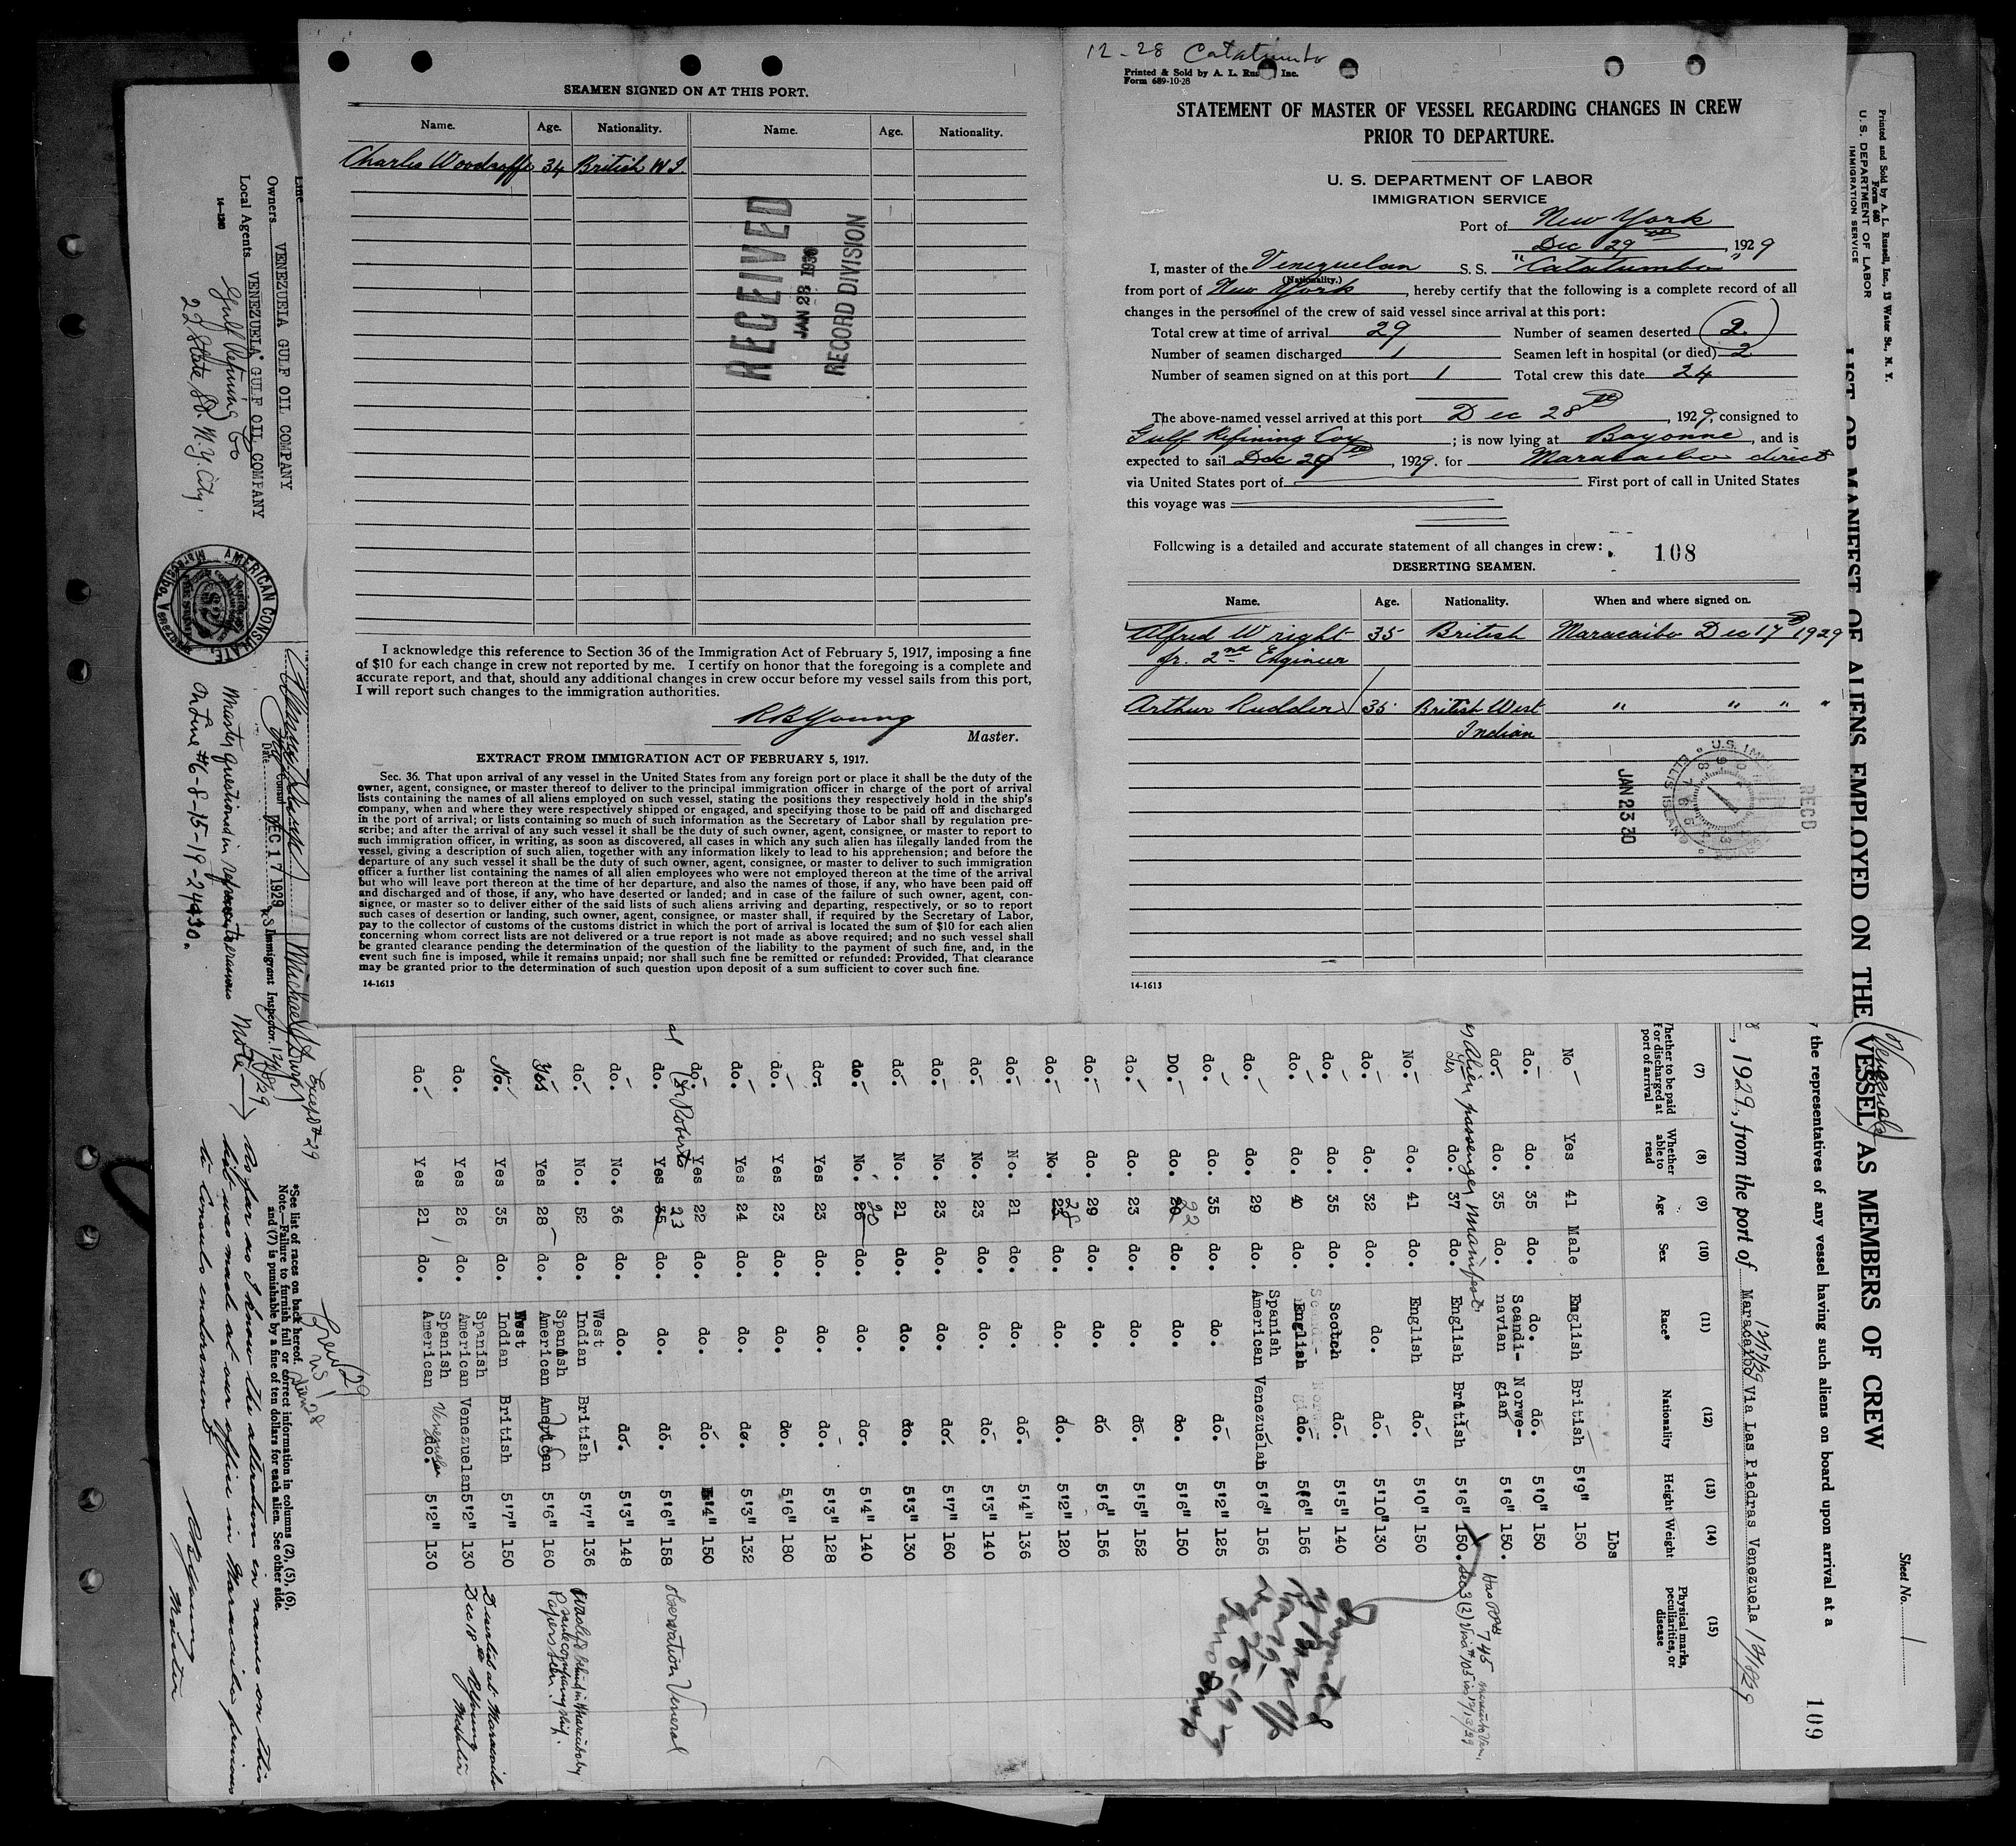 SEAMEN SIGNED ON AT THIS PORT.
Name. Age. Nationality. Name. Age. Nationality.
Charles Woodroffe 34 British W I.
RECEIVED
JAN 28 1930
RECORD DIVISION
I acknowledge this reference to Section 36 of the Immigration Act of February 5, 1917, imposing a fine
of $10 for each change in crew not reported by me. I certify on honor that the foregoing is a complete and
accurate report, and that, should any additional changes in crew occur before my vessel sails from this port,
I will report such changes to the immigration authorities.
RB Young
Master.
EXTRACT FROM IMMIGRATION ACT OF FEBRUARY 5, 1917.
Sec. 36. That upon arrival of any vessel in the United States from any foreign port or place it shall be the duty of the
owner, agent, consignee, or master thereof to deliver to the principal immigration officer in charge of the port of arrival
lists containing the names of all aliens employed on such vessel, stating the positions they respectively hold in the ship's
company, when and where they were respectively shipped or engaged, and specifying those to be paid off and discharged
in the port of arrival; or lists containing so much of such information as the Secretary of Labor shall by regulation pre-
scribe; and after the arrival of any such vessel it shall be the duty of such owner, agent, consignee, or master to report to
such immigration officer, in writing, as soon as discovered, all cases in which any such alien has illegally landed from the
vessel, giving a description of such alien, together with any information likely to lead to his apprehension; and before the
departure of any such vessel it shall be the duty of such owner, agent, consignee, or master to deliver to such immigration
officer a further list containing the names of all alien employees who were not employed thereon at the time of the arrival
but who will leave port thereon at the time of her departure, and also the names of those, if any, who have been paid off
and discharged and of those, if any, who have deserted or landed; and in case of the failure of such owner, agent, con-
signee, or master so to deliver either of the said lists of such aliens arriving and departing, respectively, or so to report
such cases of desertion or landing, such owner, agent, consignee, or master shall, if required by the Secretary of Labor,
pay to the collector of customs of the customs district in which the port of arrival is located the sum of $10 for each alien
concerning whom correct lists are not delivered or a true report is not made as above required; and no such vessel shall
be granted clearance pending the determination of the question of the liability to the payment of such fine, and, in the
event such fine is imposed, while it remains unpaid; nor shall such fine be remitted or refunded: Provided, That clearance
may be granted prior to the determination of such question upon deposit of a sum sufficient to cover such fine.
14-1613
12-28 Catatumbo
Printed & Sold by A. L. Rus Inc.
Form 689-10-28
STATEMENT OF MASTER OF VESSEL REGARDING CHANGES IN CREW
PRIOR TO DEPARTURE.
U. S. DEPARTMENT OF LABOR
IMMIGRATION SERVICE
Port of New York
Dec 29th, 1929
I, master of the Venezuelan S. S. "Catatumbo"
(Nationality.)
from port of New York, hereby certify that the following is a complete record of all
changes in the personnel of the crew of said vessel since arrival at this port:
Total crew at time of arrival 29 Number of seamen deserted 2
Number of seamen discharged 1 Seamen left in hospital (or died) 2
Number of seamen signed on at this port 1 Total crew this date 24
The above-named vessel arrived at this port Dec 28th, 1929, consigned to
Gulf Refining Coy; is now lying at Bayonne, and is
expected to sail Dec 29th, 1929. for Maracaibo direct
via United States port of First port of call in United States
this voyage was
Following is a detailed and accurate statement of all changes in crew:
108
DESERTING SEAMEN.
Name. Age. Nationality. When and where signed on.
Alfred Wright 35 British Maracaibo Dec 17th 1929
Jr. 2nd Engineer
Arthur Rudder 35 British West " " " "
Indian
JAN 23 30
RECD
14-1613
Printed and Sold by A. L. Russell, Inc., 13 Water St., N. Y.
Form 680
U. S. DEPARTMENT OF LABOR
IMMIGRATION SERVICE
LIST OR MANIFEST OF ALIENS EMPLOYED ON THE VESSEL AS MEMBERS OF CREW
Sheet No. 1
109
the representatives of any vessel having such aliens on board upon arrival at a
, 1929, from the port of Maracaibo Via Las Piedras Venezuela 12/18/29
12/17/29
(7) (8) (9) (10) (11) (12) (13) (14) (15)
Whether to be paid off or discharged at port of arrival Whether able to read Age Sex Race* Nationality Height Weight Physical marks, peculiarities, or disease
Lbs
No Yes 41 Male English British 5'9" 150
do. do. 35 do. do. do. 5'0" 150
do. do. 35 do. Scandi-navian Norwe-gian 5'6" 150.
do. 37 do. English British 5'6" 150.
Alien passenger manifest
No. do. 41 do. English do. 5'0" 150
do. do. 32 do. do. do. 5'10" 130
do. do. 35 do. Scotch do. 5'5" 140
do. do. 40 do. English do. 5'6" 156
do. do. 29 do. Spanish American Venezuelan 5'6" 156
do. do. 35 do. do. do. 5'2" 125
DO. do. 22 do. do. do. 5'6" 150
do. do. 23 do. do. do. 5'5" 152
do. do. 29 do. do. do 5'6" 156
do. No. 28 do. do. do. 5'2" 120
do. No. 21 do. do. do. 5'4" 136
do. No. 23 do. do. do. 5'3" 140
do. No. 23 do. do. do. 5'7" 160
do. No. 21 do. do. do. 5'3" 130
do. No. 26 20 do. do. do. 5'4" 140
do. Yes 23 do. do. do. 5'3" 128
do. Yes 23 do. do. do. 5'6" 180
do. Yes 24 do. do. do. 5'3" 132
do. Yes 22 do. do. do. 5'4" 150
do. Yes 35 23 do. do. do. 5'6" 158 observation Veneral
do. No. 36 do. do. do. 5'3" 148
do. No. 52 do. West Indian British 5'7" 136
Yes Yes 28 do. Spanish American American 5'6" 160
No. Yes 35 do. West Indian British 5'7" 150
do. Yes 26 do. Spanish American Venezuelan 5'2" 130
do. Yes 21 do. Spanish American do. Venezuelan 5'2" 130
Deserted at Maracaibo
Dec 18th RB Young
Master
*See list of races on back hereof.
Note.—Failure to furnish full or correct information in columns (2), (5), (6),
and (7) is punishable by a fine of ten dollars for each alien. See other side.
Line
Owners VENEZUELA GULF OIL COMPANY
Local Agents VENEZUELA GULF OIL COMPANY
Gulf Refining Co
22 State St. N.Y. City.
AMERICAN CONSULATE
Maracaibo, Venezuela
$2
Date DEC 17 1929
Immigrant Inspector.
Master questioned in
on Line #6-8-15-19-24&30.
Note
As far as I know the alteration in names on this
list was made at our office in Maracaibo previous
to Consuls endorsement
RB Young
Master